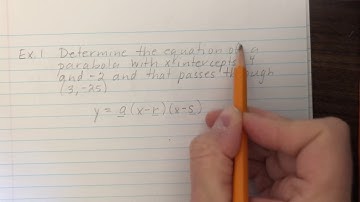 Ex. 1 Determine the equation of a
parabola with x-intercepts 4
and -2 and that passes through
(3, -25)
y = a (x-r)(x-s)